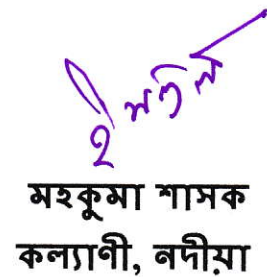 মহকুমা শাসক
কল্যাণী, নদীয়া